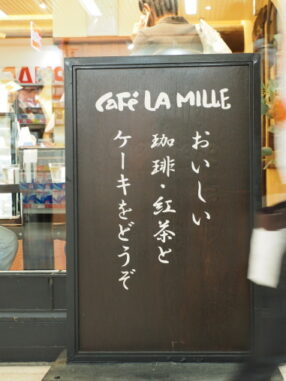 Café LA MILLE
おいしい
珈琲・紅茶と
ケーキをどうぞ